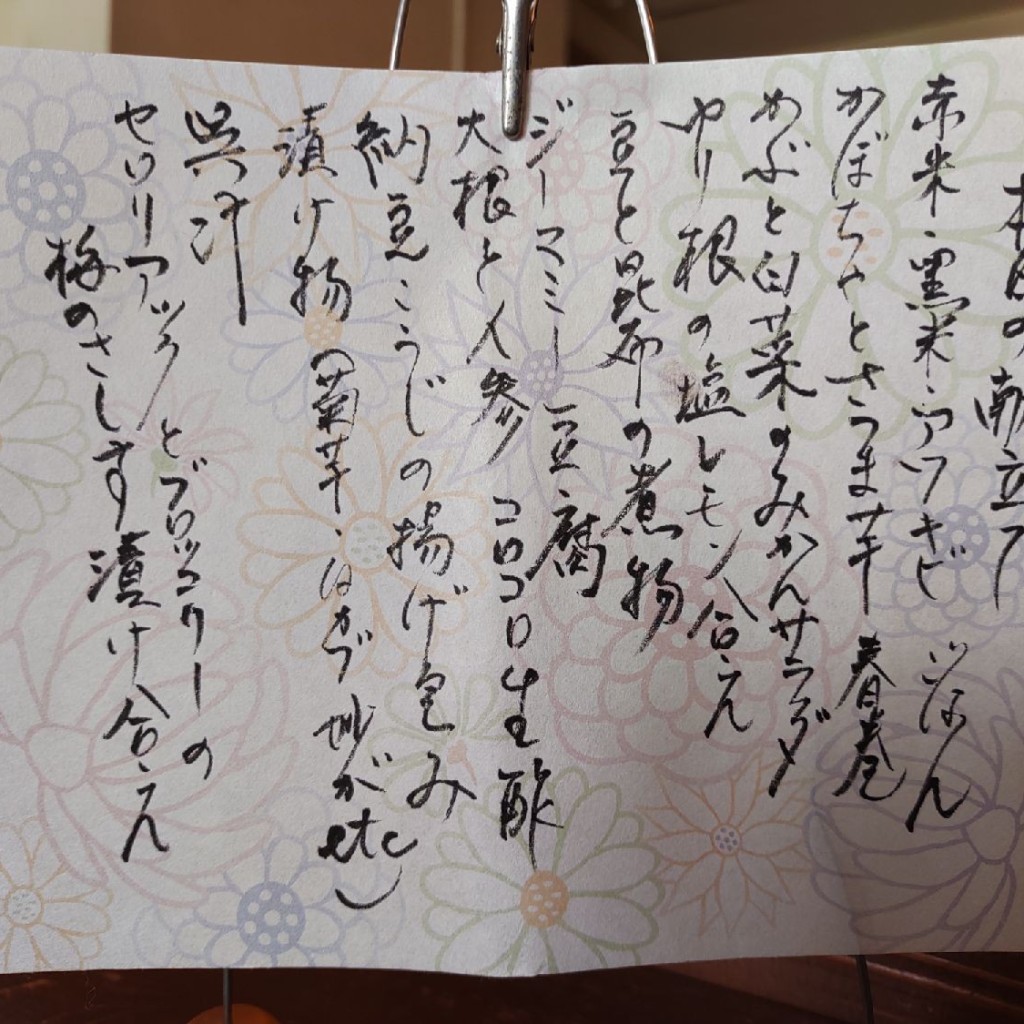 本日の献立て
赤米・黒米・アワキビごはん
かぼちゃとさつま芋春巻
かぶと白菜のみかんサラダ
ゆり根の塩レモン合え
豆と昆布の煮物
ジーマミー豆腐
大根と人参 コロコロ生酢
納豆こうじの揚げ包み
漬け物(菊芋・はざ妙がetc)
呉汁
セロリーアックとブロッコリーの
梅のさしす漬け合え